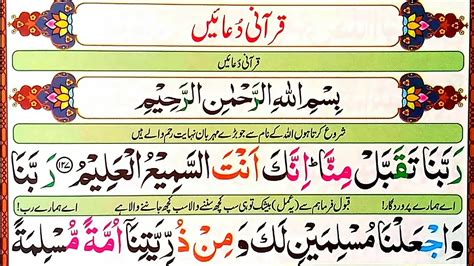 قرآنی دُعائیں
قرآنی دُعائیں
بِسْمِ اللهِ الرَّحْمٰنِ الرَّحِيْمِ
شروع کرتا ہوں اللہ کے نام سے جو بڑے مہربان نہایت رحم والے ہیں
رَبَّنَا تَقَبَّلْ مِنَّا ؕ اِنَّكَ اَنْتَ السَّمِيْعُ الْعَلِيْمُ ﴿۱۲۷﴾ رَبَّنَا
اے ہمارے پروردگار! قبول فرما ہم سے (یہ عمل) بیشک تو ہی سب کچھ سننے والا سب کچھ جاننے والا ہے اے ہمارے رب!
وَاجْعَلْنَا مُسْلِمَيْنِ لَكَ وَمِنْ ذُرِّيَّتِنَاۤ اُمَّةً مُّسْلِمَةً